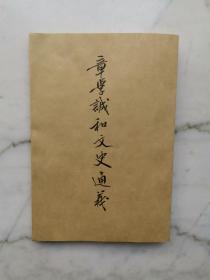 章学誠和文史通義